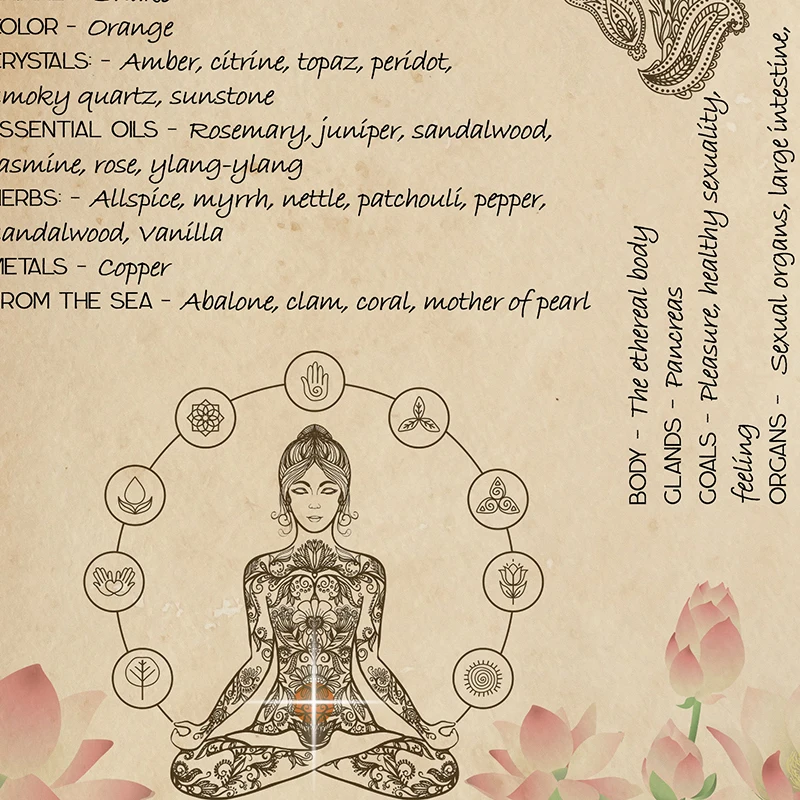 COLOR - Orange
CRYSTALS: - Amber, citrine, topaz, peridot,
smoky quartz, sunstone
ESSENTIAL OILS - Rosemary, juniper, sandalwood,
jasmine, rose, ylang-ylang
HERBS: - Allspice, myrrh, nettle, patchouli, pepper,
sandalwood, vanilla
METALS - Copper
FROM THE SEA - Abalone, clam, coral, mother of pearl
BODY - The ethereal body
GLANDS - Pancreas
GOALS - Pleasure, healthy sexuality,
feeling
ORGANS - Sexual organs, large intestine,